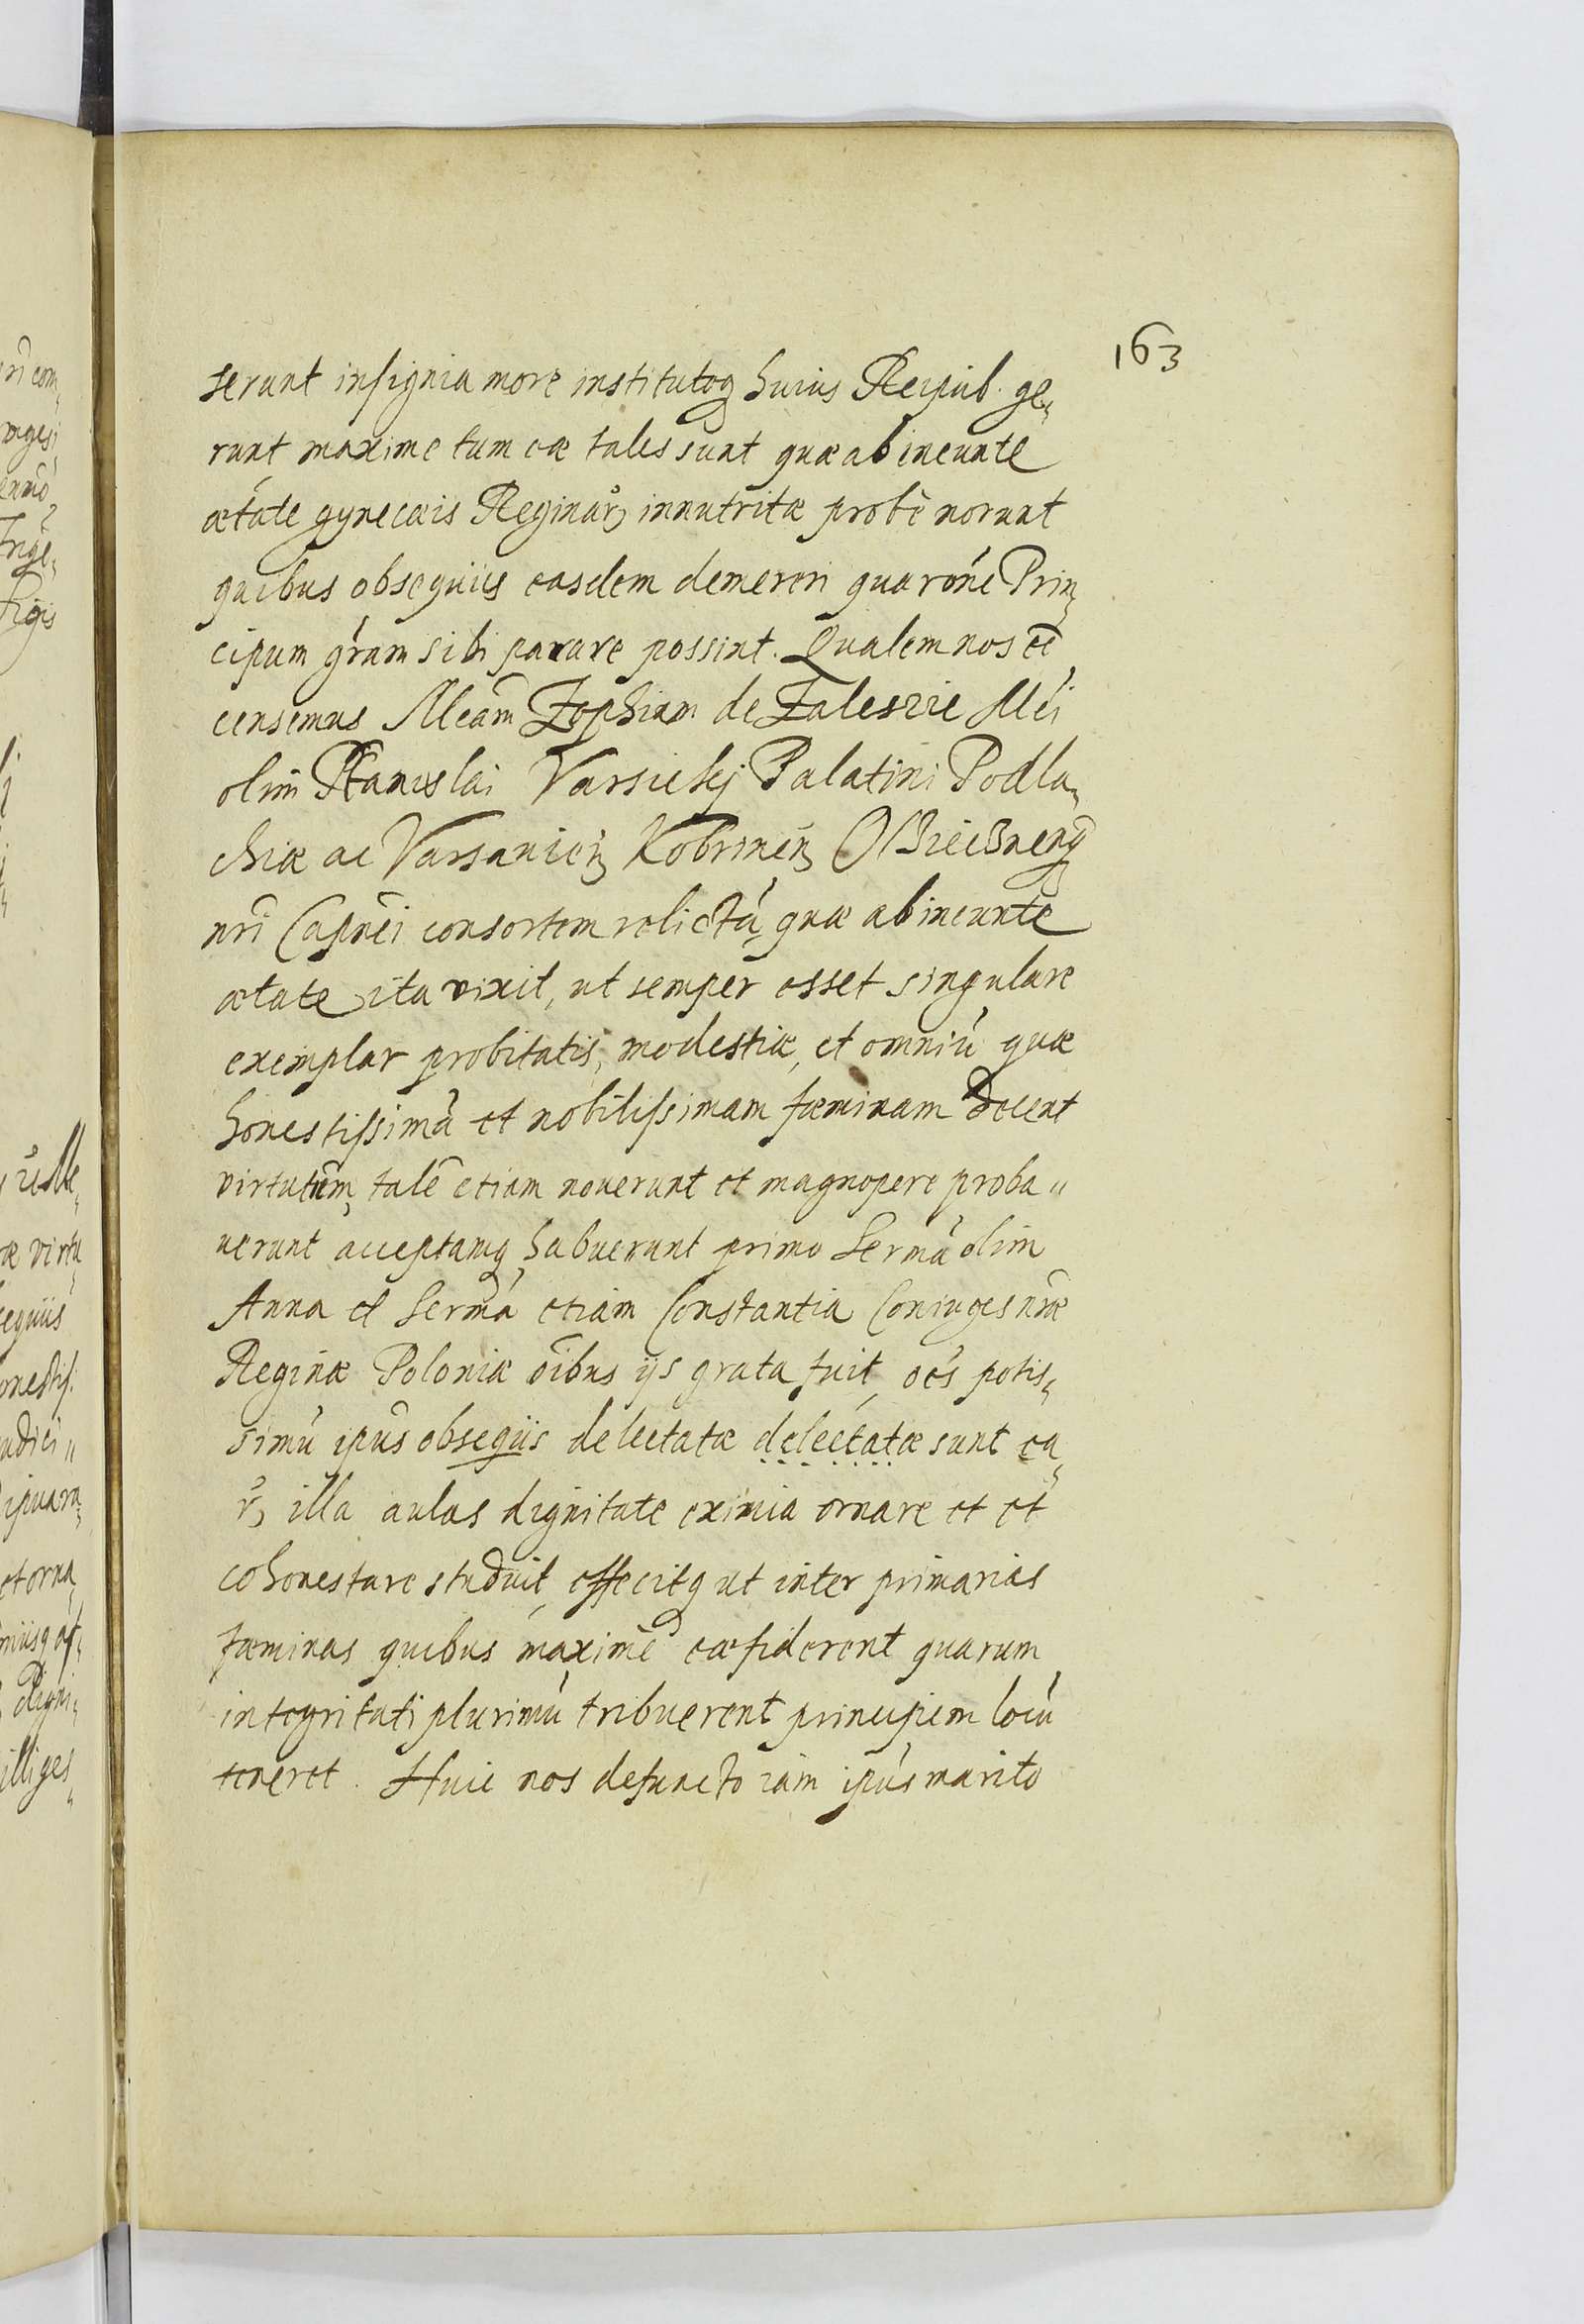 163
serunt insignia more institutoq huius Reipub. ge„
runt maxime tum eæ tales sunt quæ ab ineunte
ætate gynecæis Reginaꝝ innutritæ probè norunt
quibus obsequiis easdem demereri qua rõne Prin„
cipum grãm sibi parare possint. Qualem nos eẽ
censemus Mcãm Zophiam de Zaleszie Mci
olim Stanislai Varsicky Palatini Podla„
chiæ ac Varsavień Kobrineń
nri Capnei consortem relictã, quæ ab ineunte
ætate ita vixit, ut semper esset singulare
exemplar probitatis, modestiæ, et omniũ quæ
honestissimã et nobilissimam fœminam decent
virtutum, talẽ etiam noverunt et magnopere proba„
uerunt acceptamq habuerunt primo Sermã olim
Anna et Sermã etiam Constantia Coniuges nræ
Reginæ Poloniæ oĩbus ijs grata fuit, oẽs potis„
simũ ipũs obsegiis delectatæ delectatæ sunt ea„
ꝝ, illa aulas dignitate eximia ornare et et
cohonestare studuit, effecitq ut inter primarias
fœminas quibus maximè eæ fiderent quarum
integritati plurimũ tribuerent principem locũ
teneret. Huic nos defuncto iam ipũs marito
ri com„
Inge„
tigis
æ virtu„
sequiis
onestiss.
udici„
et orna„
digni„